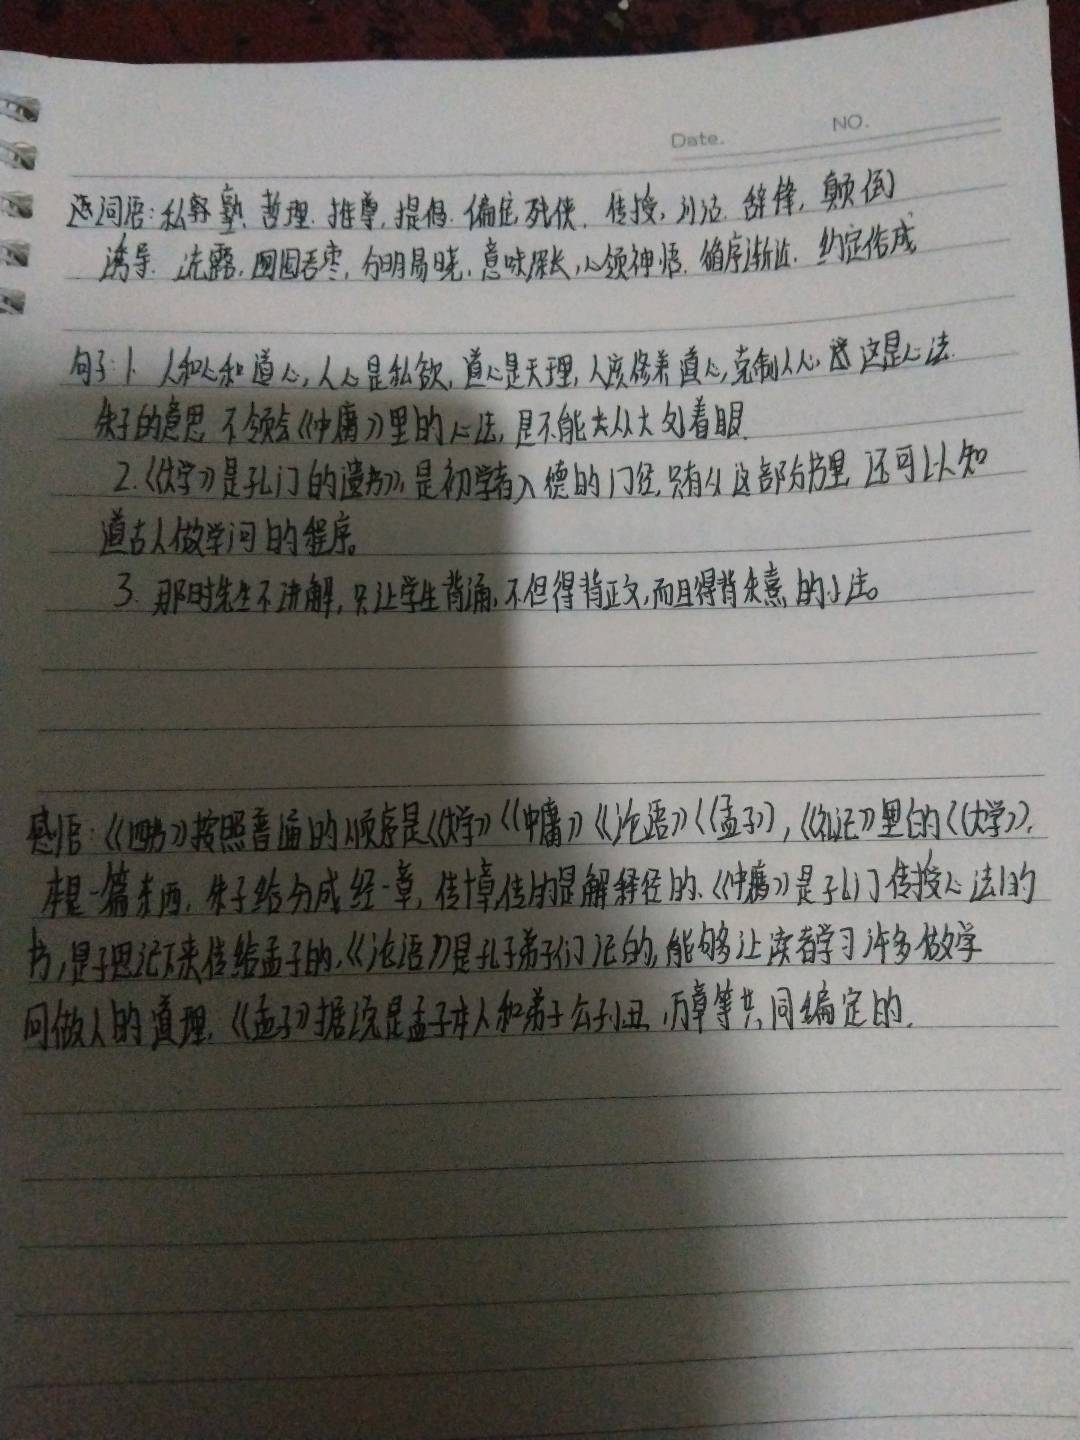 Date.
NO.
词语：私塾、哲理、推尊、提倡、偏店、死使、传授、引洁、辞锋、颠倒
诱导、流露、囫囵吞枣、分明易晓、意味深长、心领神悟、循序渐近、约定俗成
句子：1、人和心和道心，人心是私欲，道心是天理，人该修养道心，克制人心，这是心法。
朱子的意思 不领会《中庸》里的心法，是不能去从大处着眼.
2.《大学》是孔门的遗书，是初学者入德的门径，只有从这部书里，还可以知
道古人做学问的程序。
3. 那时先生不讲解，只让学生背诵，不但得背正文，而且得背朱熹的小注。
感悟：《四书》按照普遍的顺序是《大学》《中庸》《论语》《孟子》，《礼记》里的《大学》，
本是一篇东西，朱子给分成经一章，传十章，传的是解释经的、《中庸》是孔门传授心法的
书，是子思记下来传给孟子的，《论语》是孔子弟子们记的，能够让读者学习许多做学
问做人的道理，《孟子》据说是孟子本人和弟子公孙丑、万章等共同编定的.